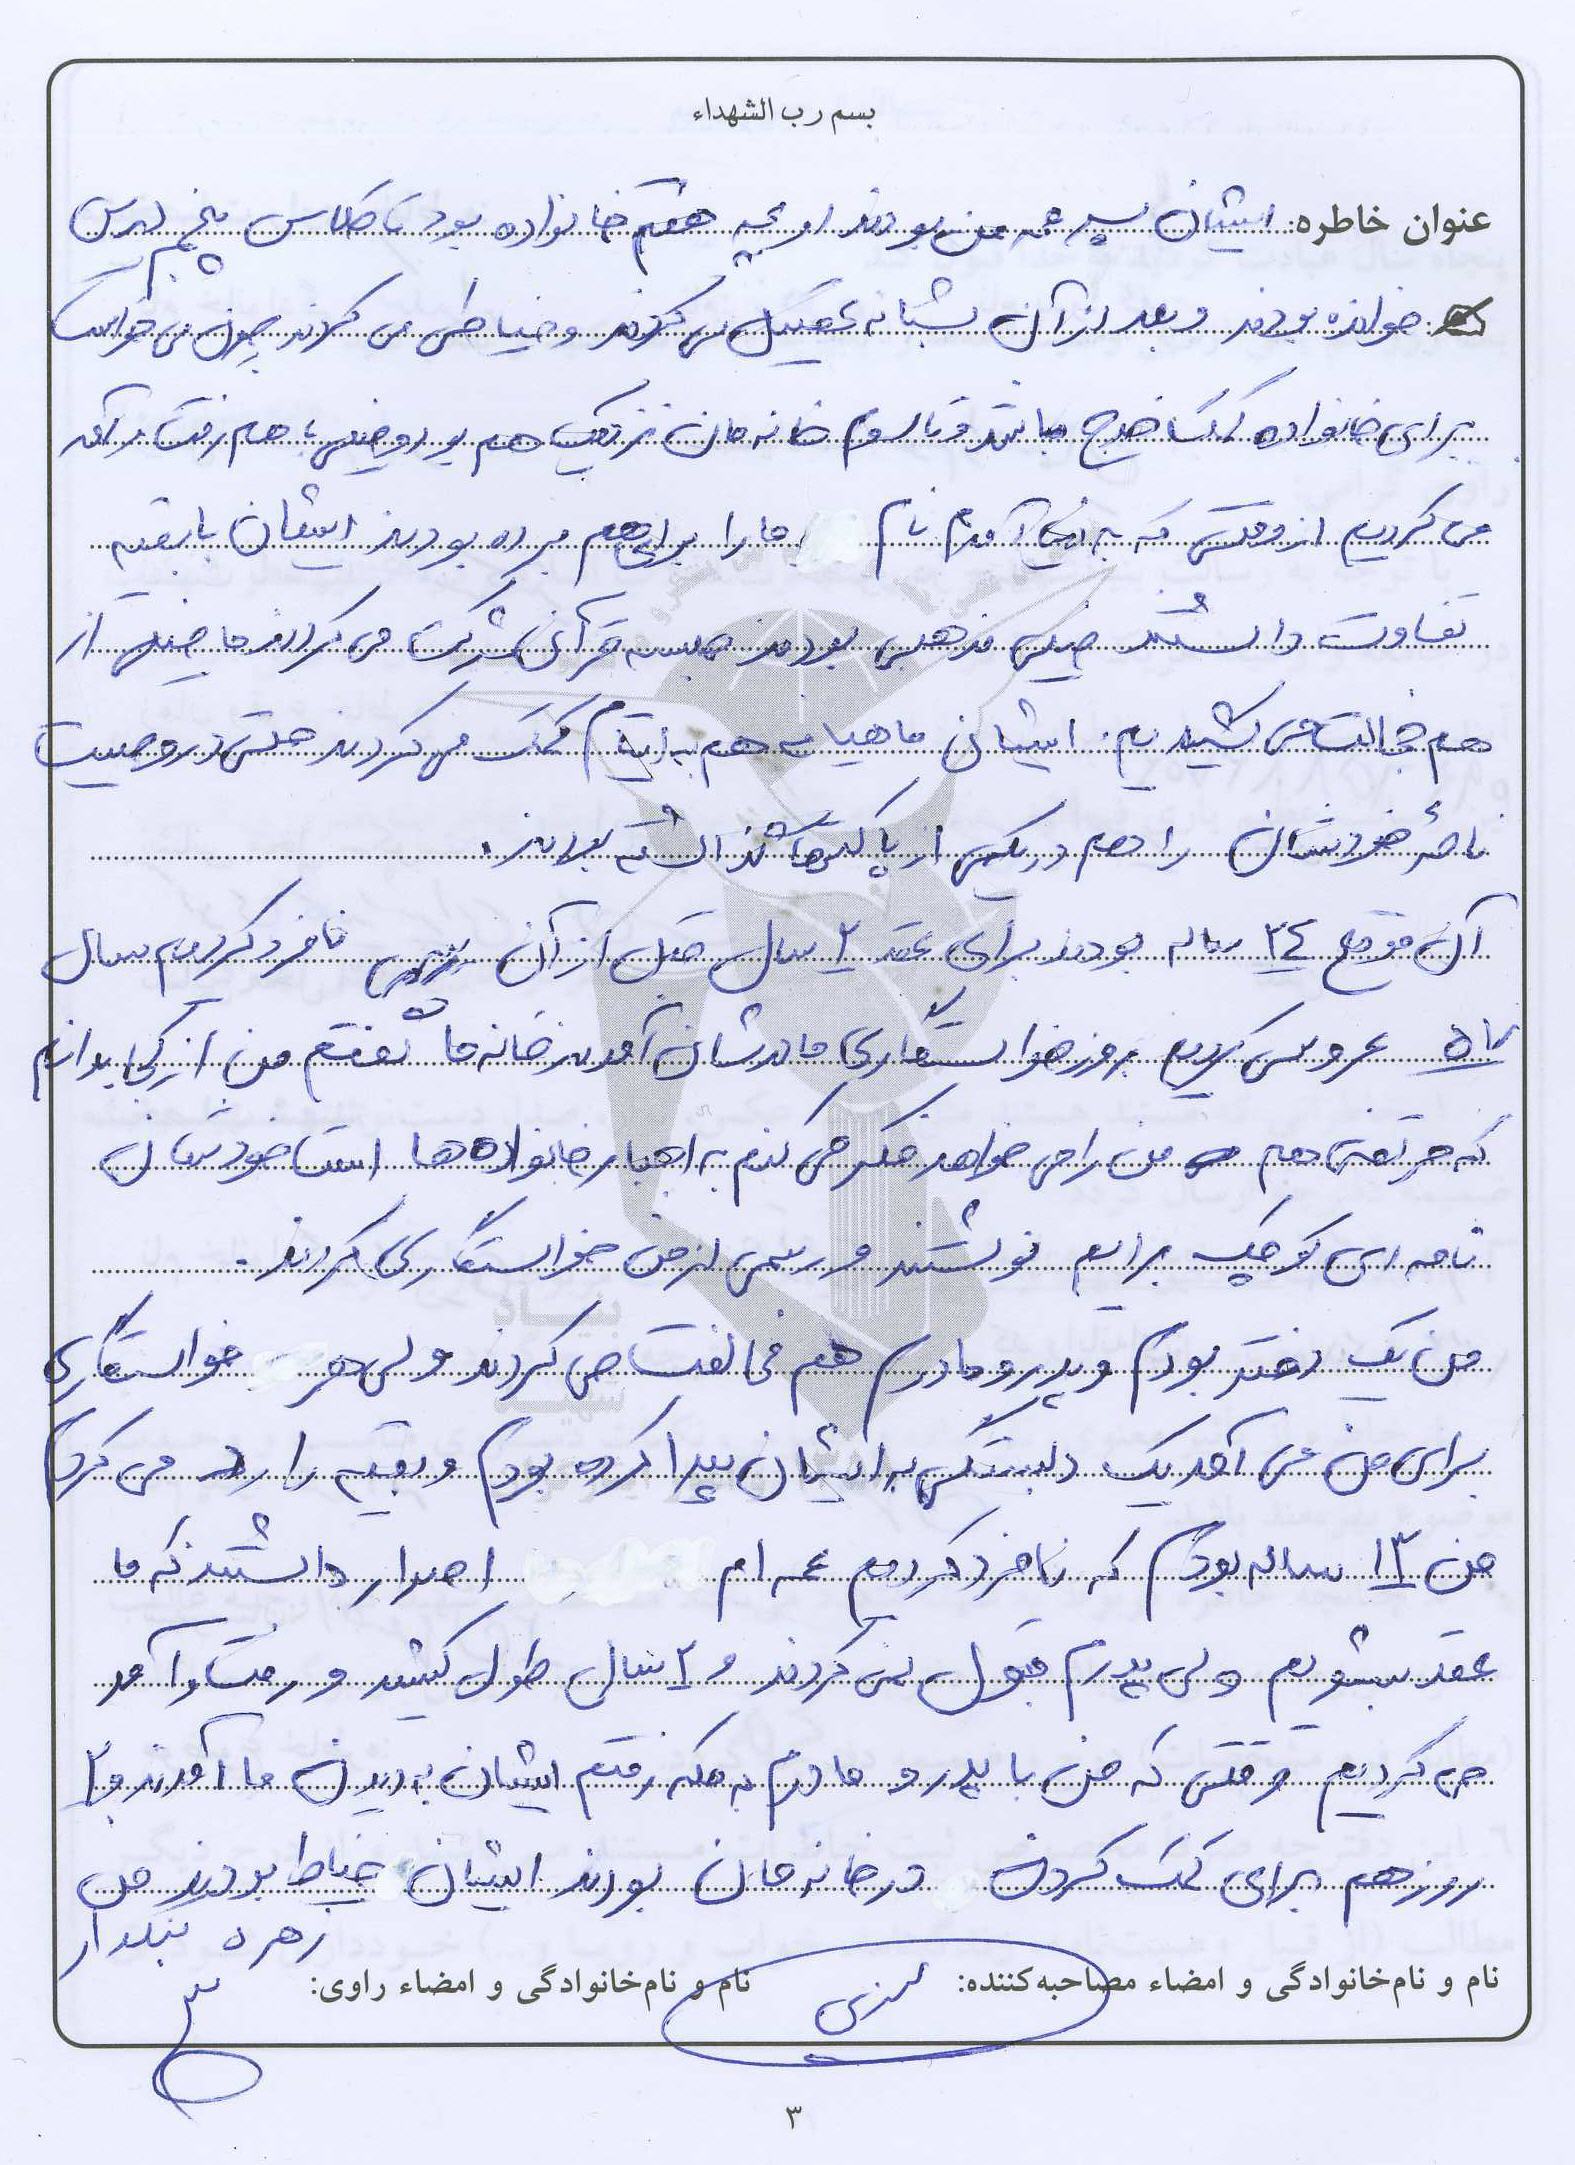 بسم رب الشهداء
عنوان خاطره: ایشان پسر عمه من بودند او بچه هفتم خانواده بود تا کلاس پنجم درس
خوانده بودند و بعد از آن شبانه تحصیل می کردند و خیاطی می کردند چون می خواست
برای خانواده کمک خرج باشد و تا سوم خانه مان نزدیک هم بود و خیلی با هم رفت و آمد
می کردیم از وقتی که به دنیا آمدم نام ما را برای هم برده بودند ایشان با بقیه
تفاوت داشتند خیلی مذهبی بودند جلسه قرآن شرکت می کردند ما خیلی از
هم خجالت می کشیدیم. ایشان ماهیانه هم به ایتام کمک می کردند حتی در وصیت
نامه خودشان را هم در یکی از پاکت ها گذاشته بودند.
آن موقع ۲۴ ساله بودند برای عقد ۲ سال قبل از آن نامزد کردیم سال
۵۷ عروسی کردیم روز خواستگاری مادرشان آمدند خانه ما گفتم من از کجا بدانم
که مرتضی هم من را می خواهد فکر می کنم به اجبار خانواده ها است خودشان
نامه ای کوچک برایم نوشتند و رسمی از من خواستگاری کردند.
من یک دختر بودم و پدر و مادرم هم مخالفت می کردند ولی هر خواستگاری
برای من می آمد یک دلبستگی به ایشان پیدا کرده بودم و بقیه را رد می کردم
من ۱۳ ساله بودم که نامزد کردیم عمه ام اصرار داشتند که ما
عقد بشویم ولی پدرم قبول نمی کردند و ۲ سال طول کشید و رفت و آمد
می کردیم وقتی که من با پدر و مادرم به مکه رفتم ایشان به دیدن ما آمدند و ۲
روز هم برای کمک کردن در خانه مان بودند ایشان خیاط بودند من
زهره
نام و نام‌خانوادگی و امضاء مصاحبه‌کننده: نام و نام‌خانوادگی و امضاء راوی:
۳